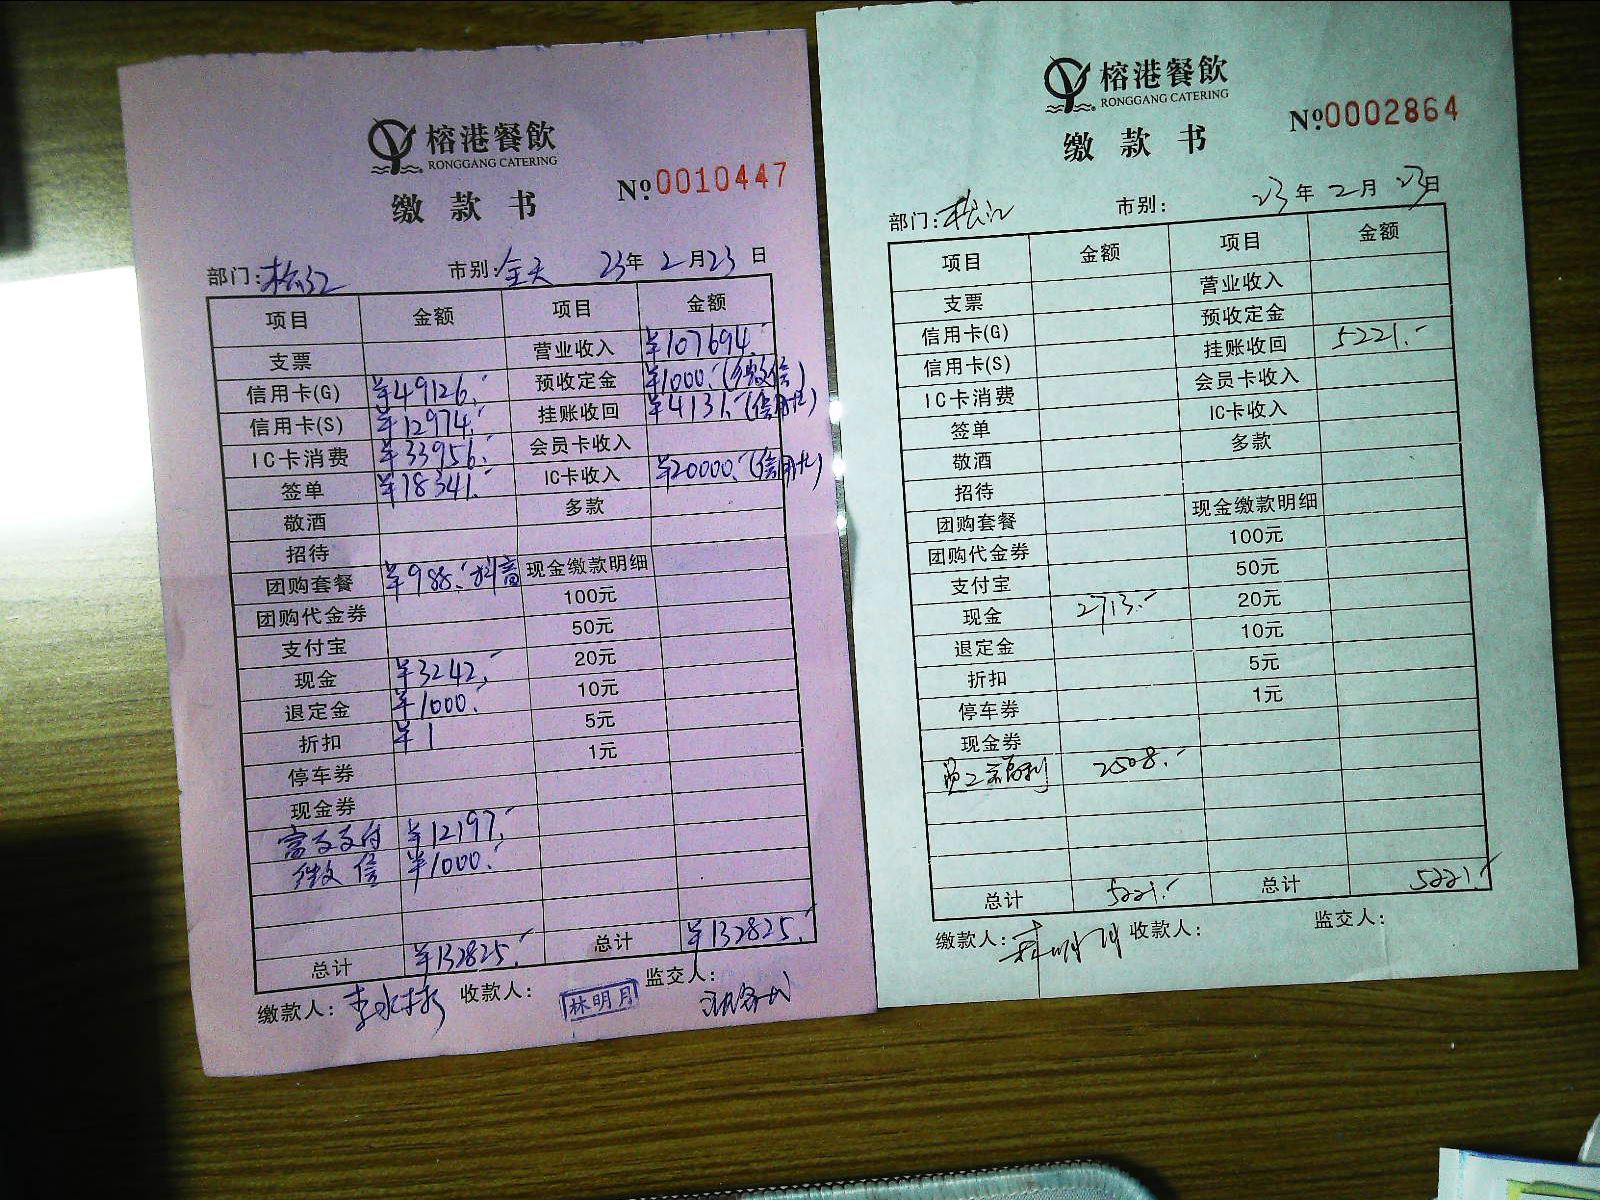 榕港餐飲
RONGGANG CATERING
缴款书
№0010447
部门:松江 市别:全天 23年2月23日
项目 金额 项目 金额
支票 营业收入 ¥107694.-
信用卡(G) ¥49126.- 预收定金 ¥1000.-(微信)
信用卡(S) ¥12974.- 挂账收回 ¥4131.-(信用卡)
IC卡消费 ¥33956.- 会员卡收入
签单 ¥18341.- IC卡收入 ¥20000.-(信用卡)
敬酒 多款
招待
团购套餐 ¥988.-抖音 现金缴款明细
团购代金券 100元
支付宝 50元
现金 ¥3242.- 20元
退定金 ¥1000.- 10元
折扣 ¥1 5元
停车券 1元
现金券
富友支付 ¥12197.-
微信 ¥1000.-
总计 ¥132825.- 总计 ¥132825.-
缴款人: 收款人: 林明月 监交人:
榕港餐飲
RONGGANG CATERING
缴款书
№0002864
部门:松江 市别: 23年2月23日
项目 金额 项目 金额
支票 营业收入
信用卡(G) 预收定金
信用卡(S) 挂账收回 5221.-
IC卡消费 会员卡收入
签单 IC卡收入
敬酒 多款
招待
团购套餐 现金缴款明细
团购代金券 100元
支付宝 50元
现金 2713.- 20元
退定金 10元
折扣 5元
停车券 1元
现金券
员工福利 2508.-
总计 5221.- 总计 5221.-
缴款人:林明月 收款人: 监交人: